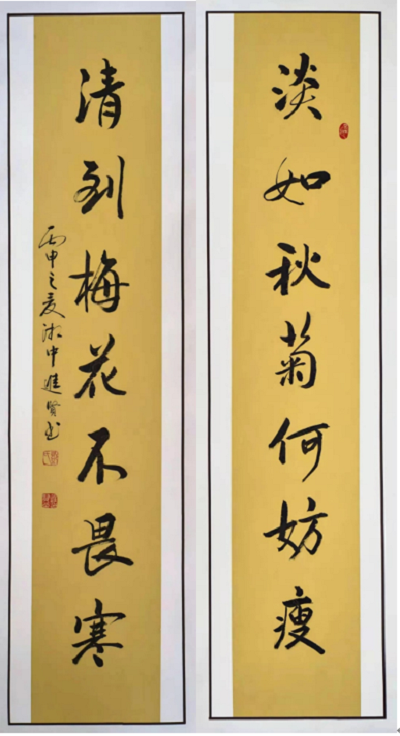 淡如秋菊何妨瘦
清到梅花不畏寒
丙申之夏湘中进贤书